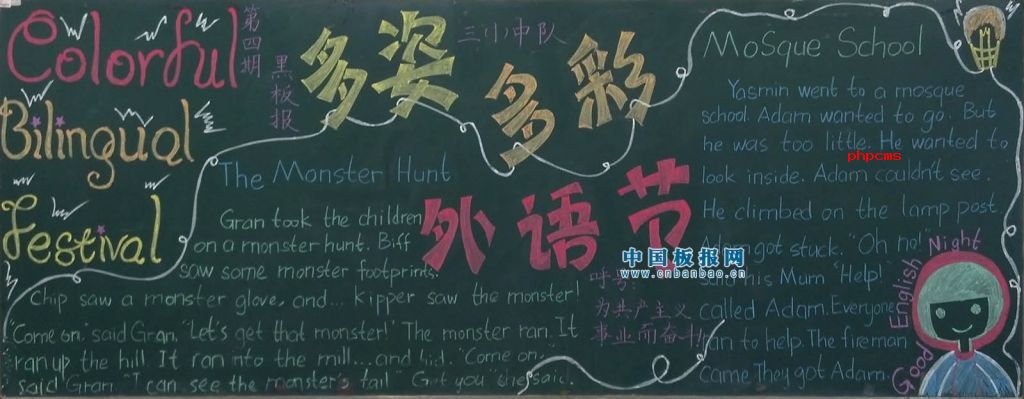 Colorful
Bilingual
Festival
第四期
黑板报
多姿多彩
三小中队
外语节
The Monster Hunt
Gran took the children
on a monster hunt. Biff
saw some monster footprints.
Chip saw a monster glove, and... kipper saw the monster!
"Come on," said Gran. "Let's get that monster!" The monster ran. It
ran up the hill. It ran into the mill...and hid. "Come on,"
said Gran. "I can see the monster's tail" Got you" she said.
呼号:
为共产主义
事业而奋斗!
MoSque School
Yasmin went to a mosque
school. Adam wanted to go. But
he was too little. He wanted to
look inside. Adam couldn't see.
He climbed on the lamp post
Adam got stuck. "Oh no!"
said his Mum "Help!"
called Adam. Everyone
ran to help. The fireman
came. They got Adam.
Good English Night
phpcms
中国板报网
www.cnbanbao.cn